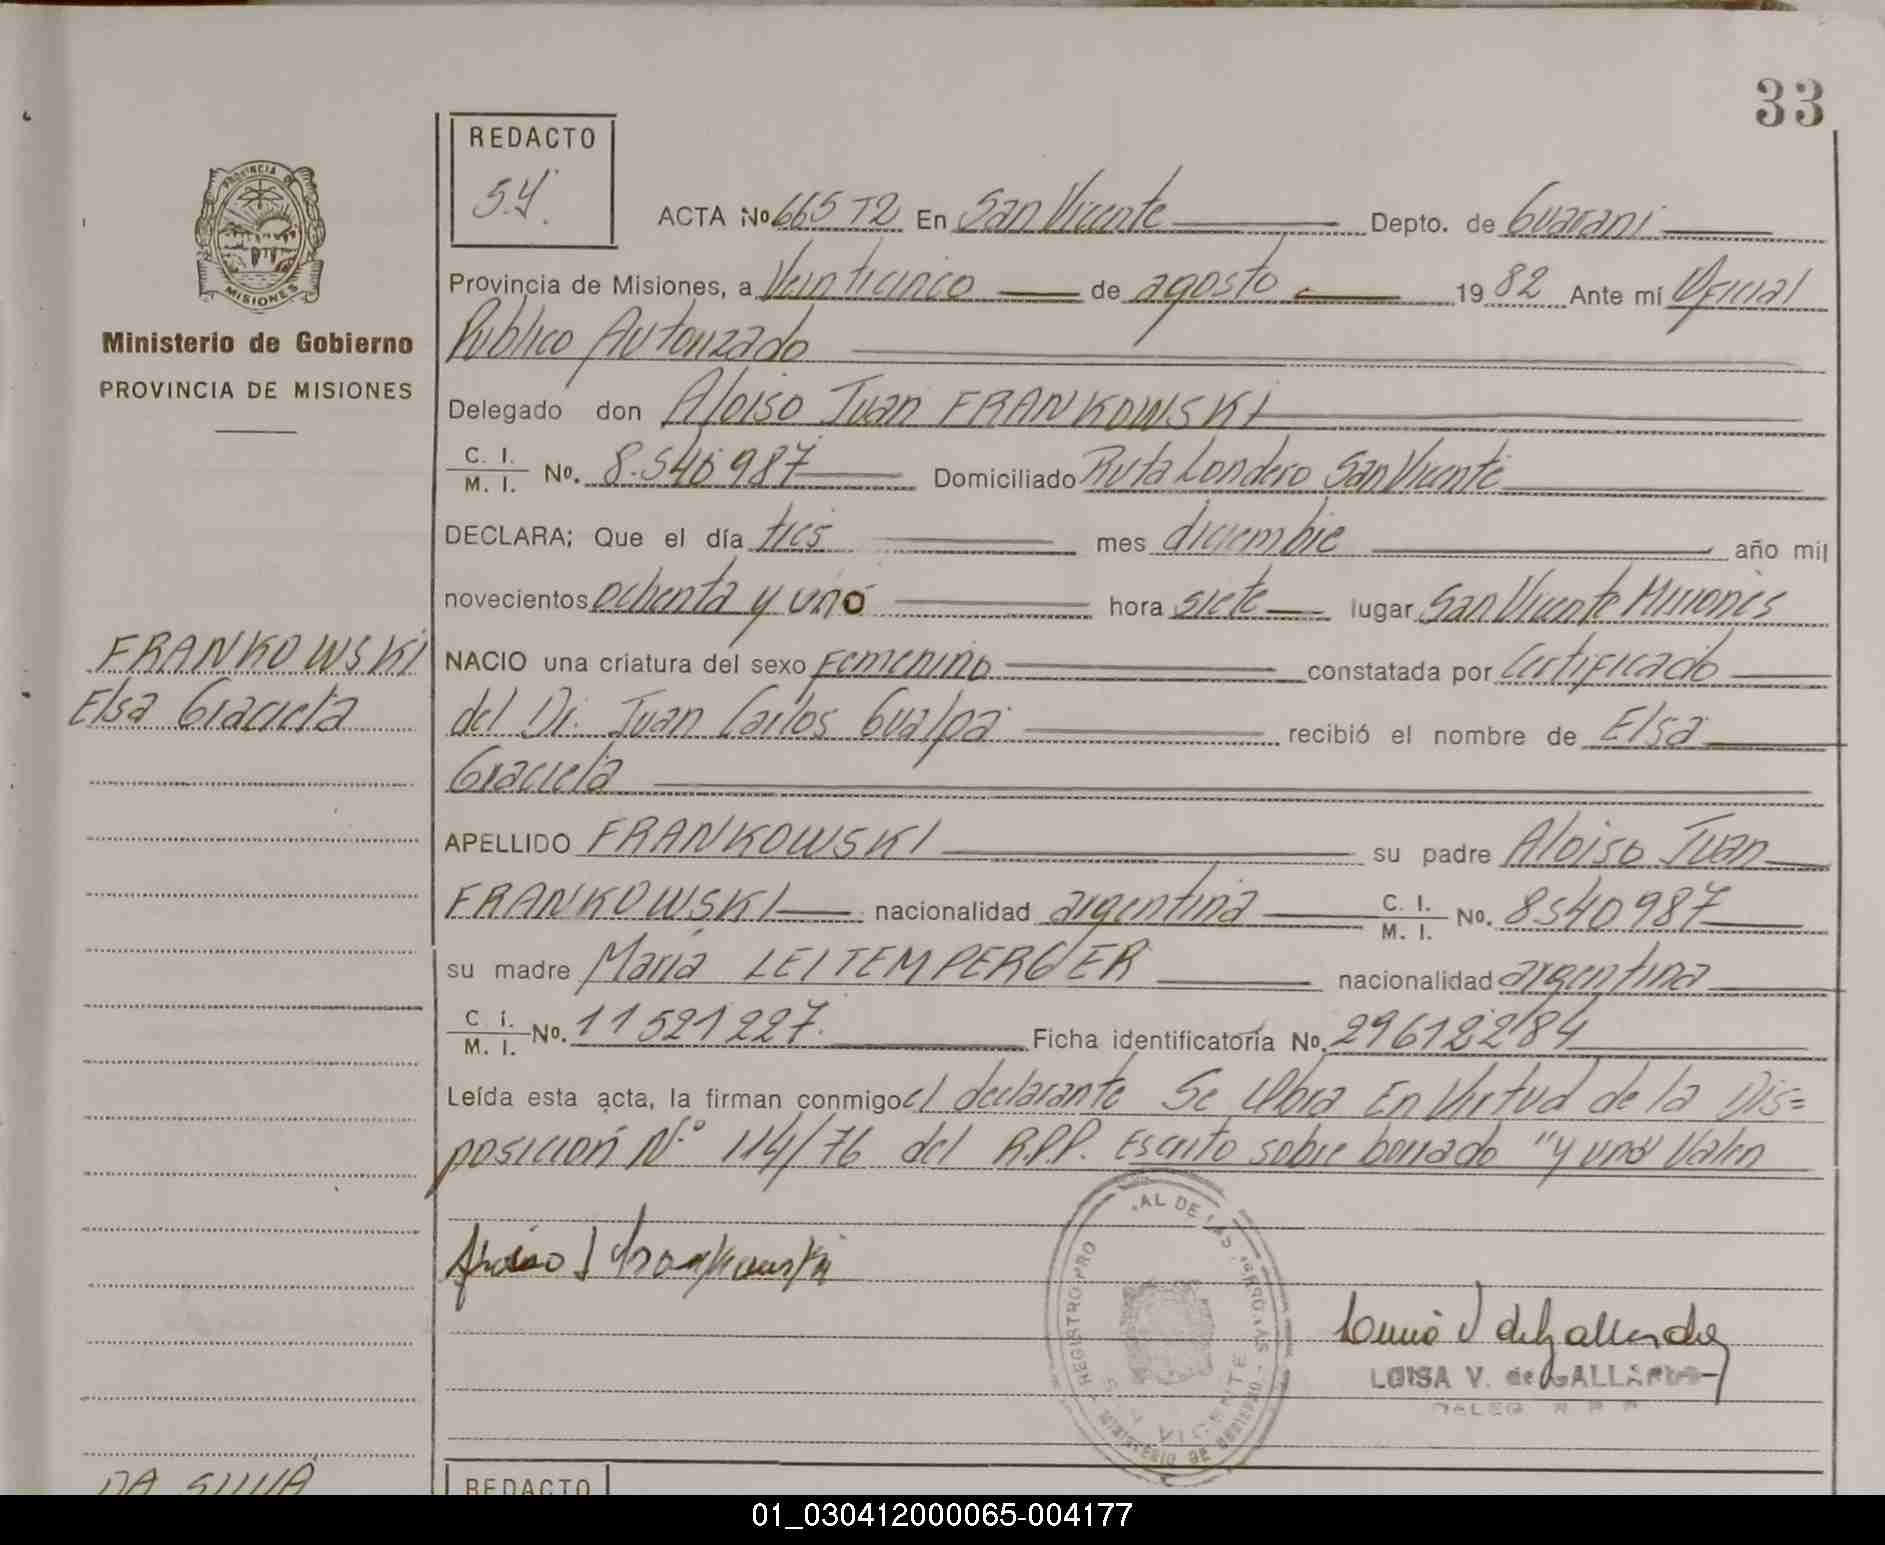 33
REDACTO
S.Y.
ACTA No 66572 En San Vicente Depto. de Guaraní
PROVINCIA DE
MISIONES
Provincia de Misiones, a Veinticinco de agosto 1982 Ante mí Oficial
Ministerio de Gobierno
Publico Autorizado
PROVINCIA DE MISIONES
Delegado don Aloiso Juan FRANKOWSKI
C. I.
M. I. No. 8.540987 Domiciliado Ruta Londero San Vicente
DECLARA; Que el día tres mes diciembre año mil
novecientos ochenta y uno hora siete lugar San Vicente Misiones
FRANKOWSKI
NACIO una criatura del sexo Femenino constatada por Certificado
Elsa Graciela
del Dr. Juan Carlos Gualpa recibió el nombre de Elsa
Graciela
APELLIDO FRANKOWSKI su padre Aloiso Juan
FRANKOWSKI nacionalidad argentina C. I. M. I. No. 8540987
su madre María LEITEMPERGER nacionalidad argentina
C. I.
M. I. No. 11521227. Ficha identificatoria No. 29612284
Leída esta acta, la firman conmigo el declarante Se Labra En Virtud de la Dis=
posición N.º 114/76 del R.P.P. Escrito sobre borrado "y uno" Valen
Aloiso J Frankowski
REGISTRO PRO AL DE LAS PERSONAS
VICENTE
MINISTERIO DE GOBIERNO
LUISA V. de GALLARDO
DELEG. R P P
DA SILVA
REDACTO
01_030412000065-004177